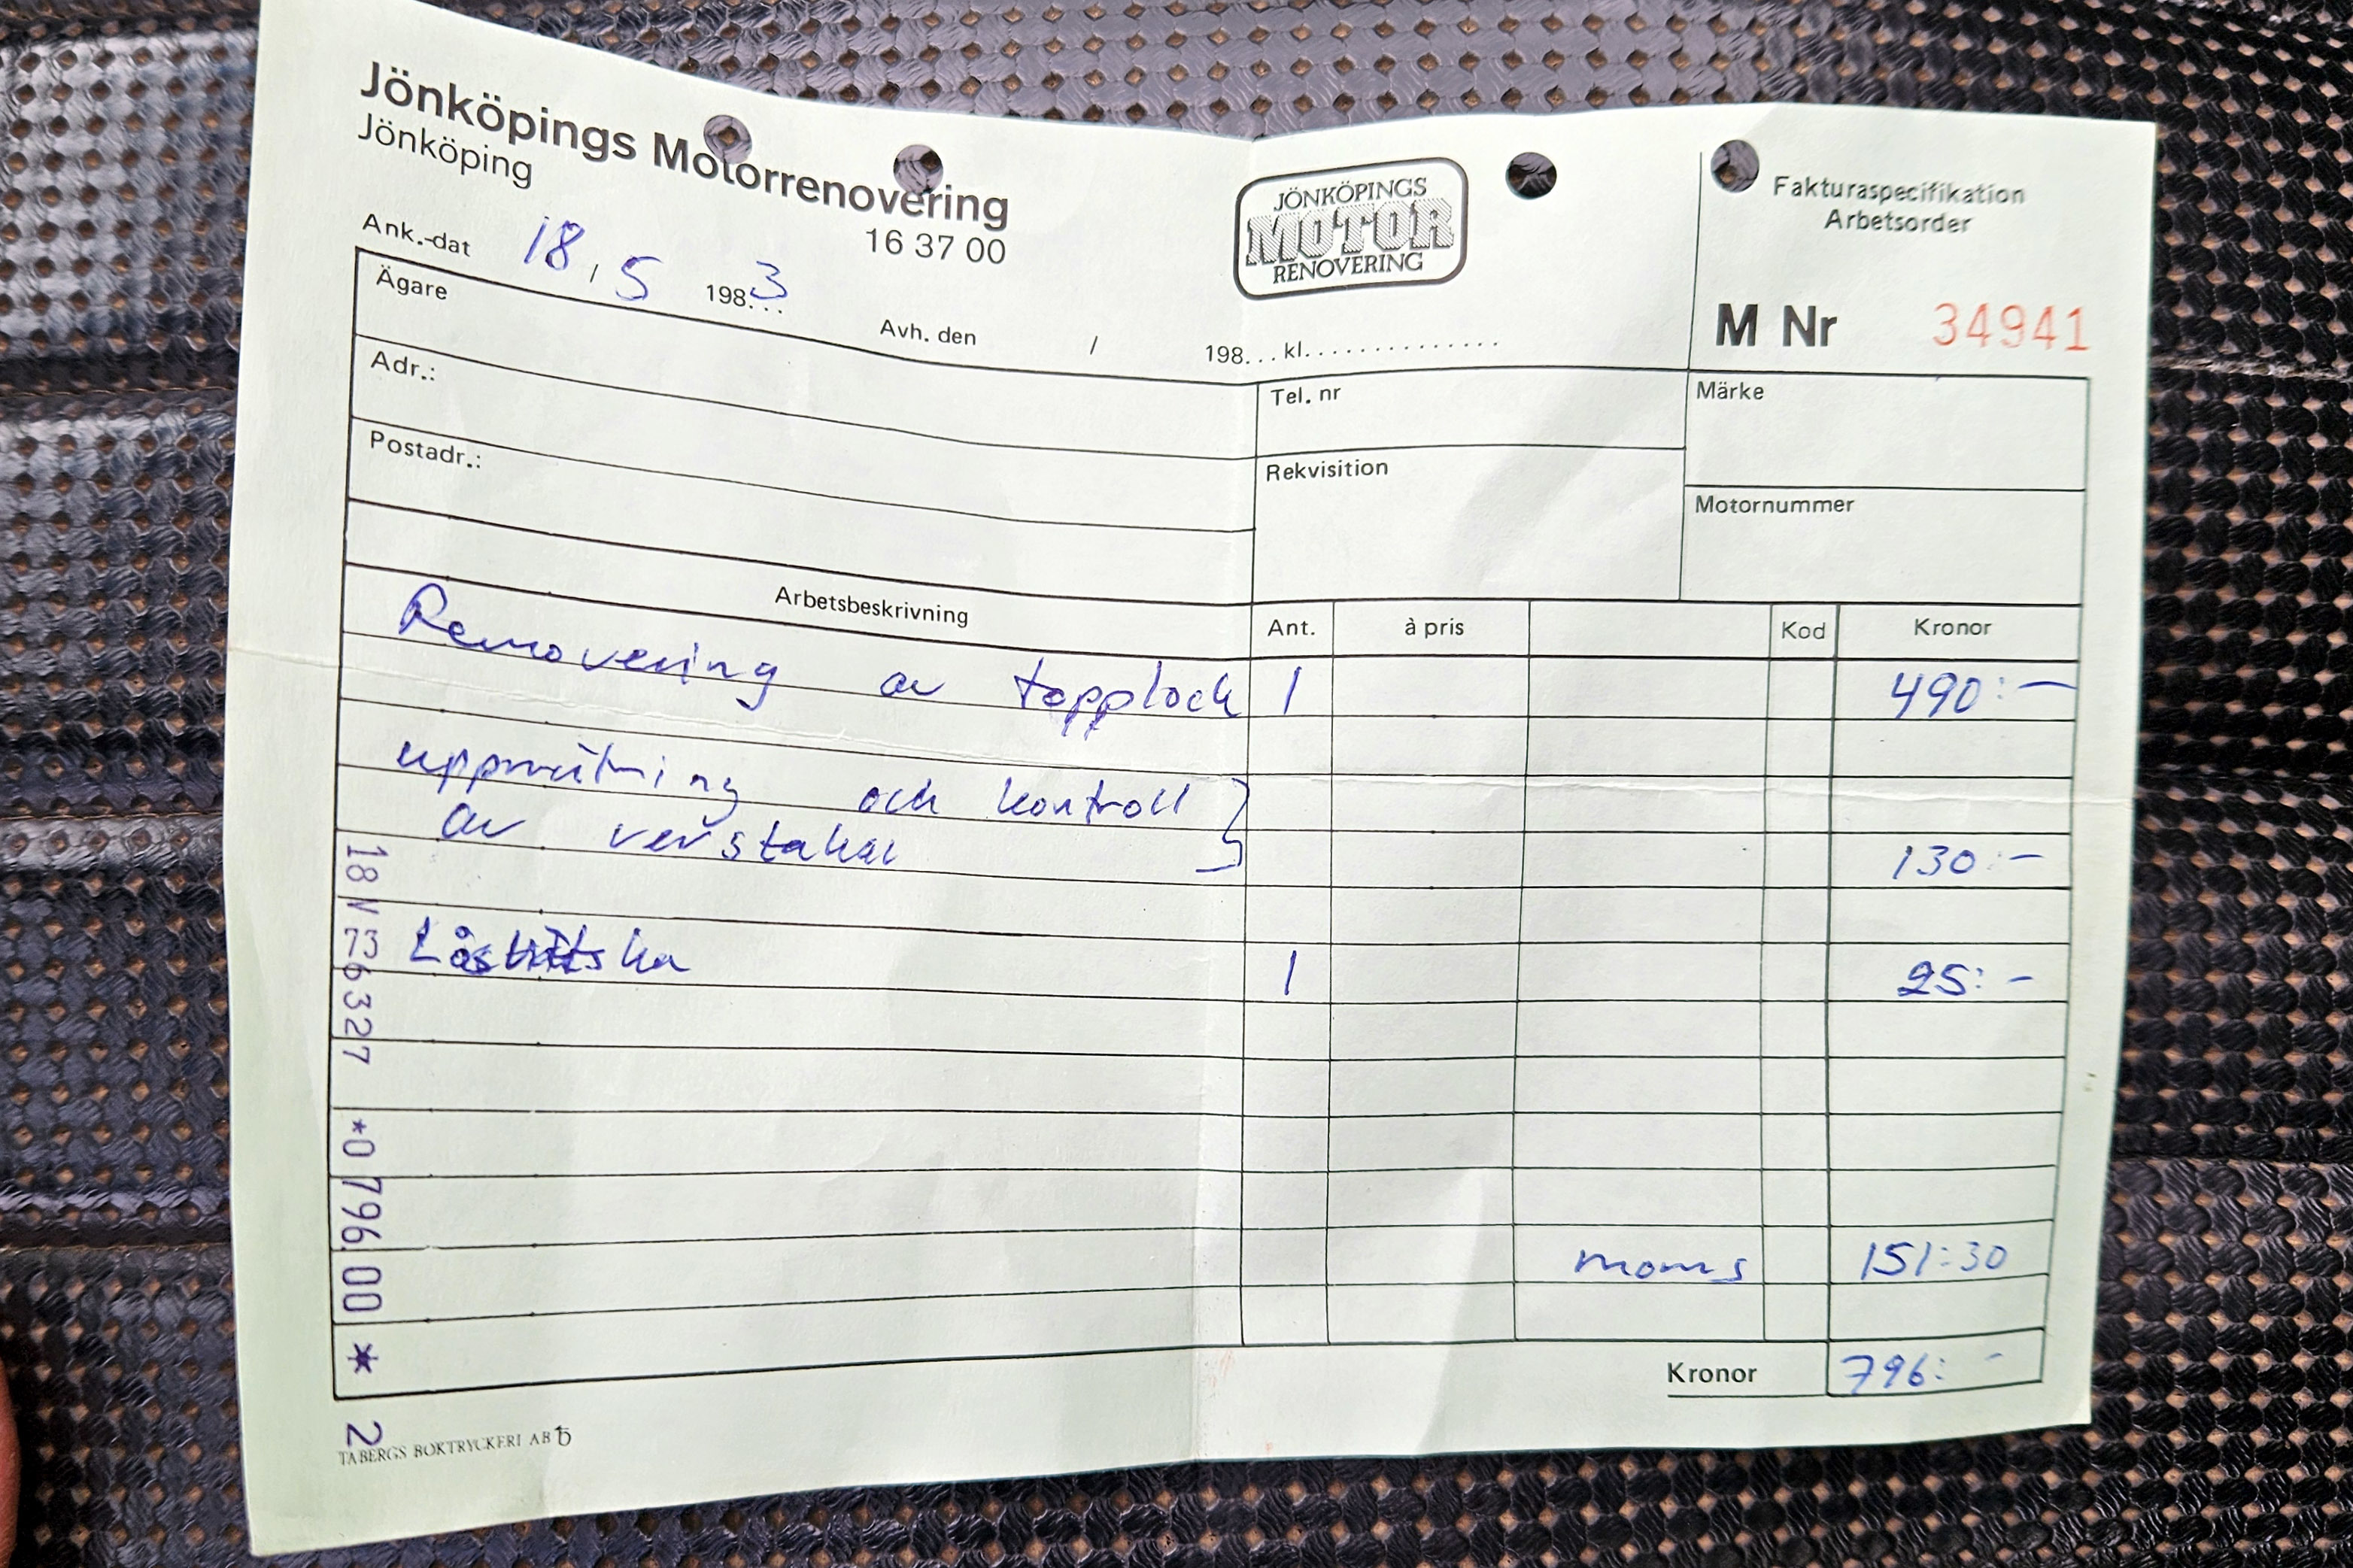 Jönköpings Motorrenovering
Jönköping
16 37 00
JÖNKÖPINGS
MOTOR
RENOVERING
Fakturaspecifikation
Arbetsorder
Ank.-dat 18 / 5 198...3
Avh. den / 198... kl..............
M Nr 34941
Ägare
Adr.:
Postadr.:
Tel. nr
Rekvisition
Märke
Motornummer
Arbetsbeskrivning Ant. à pris Kod Kronor
Renovering av topplock 1 490:-
uppmätning och kontroll
av vevstakar 130:-
1 25:-
moms 151:30
Kronor 796:-
18 V 73 6327 *0796.00* 2
TABERGS BOKTRYCKERI AB